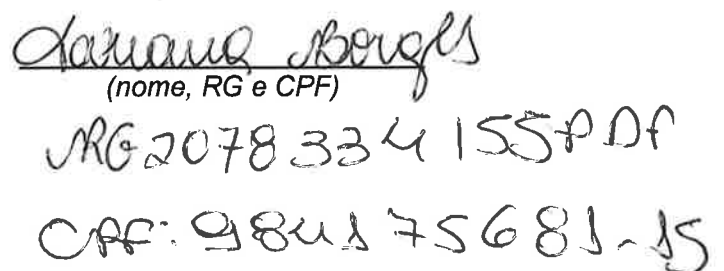 Tatiana Borges
(nome, RG e CPF)
RG 2078334155PDF
CPF: 984175681-15